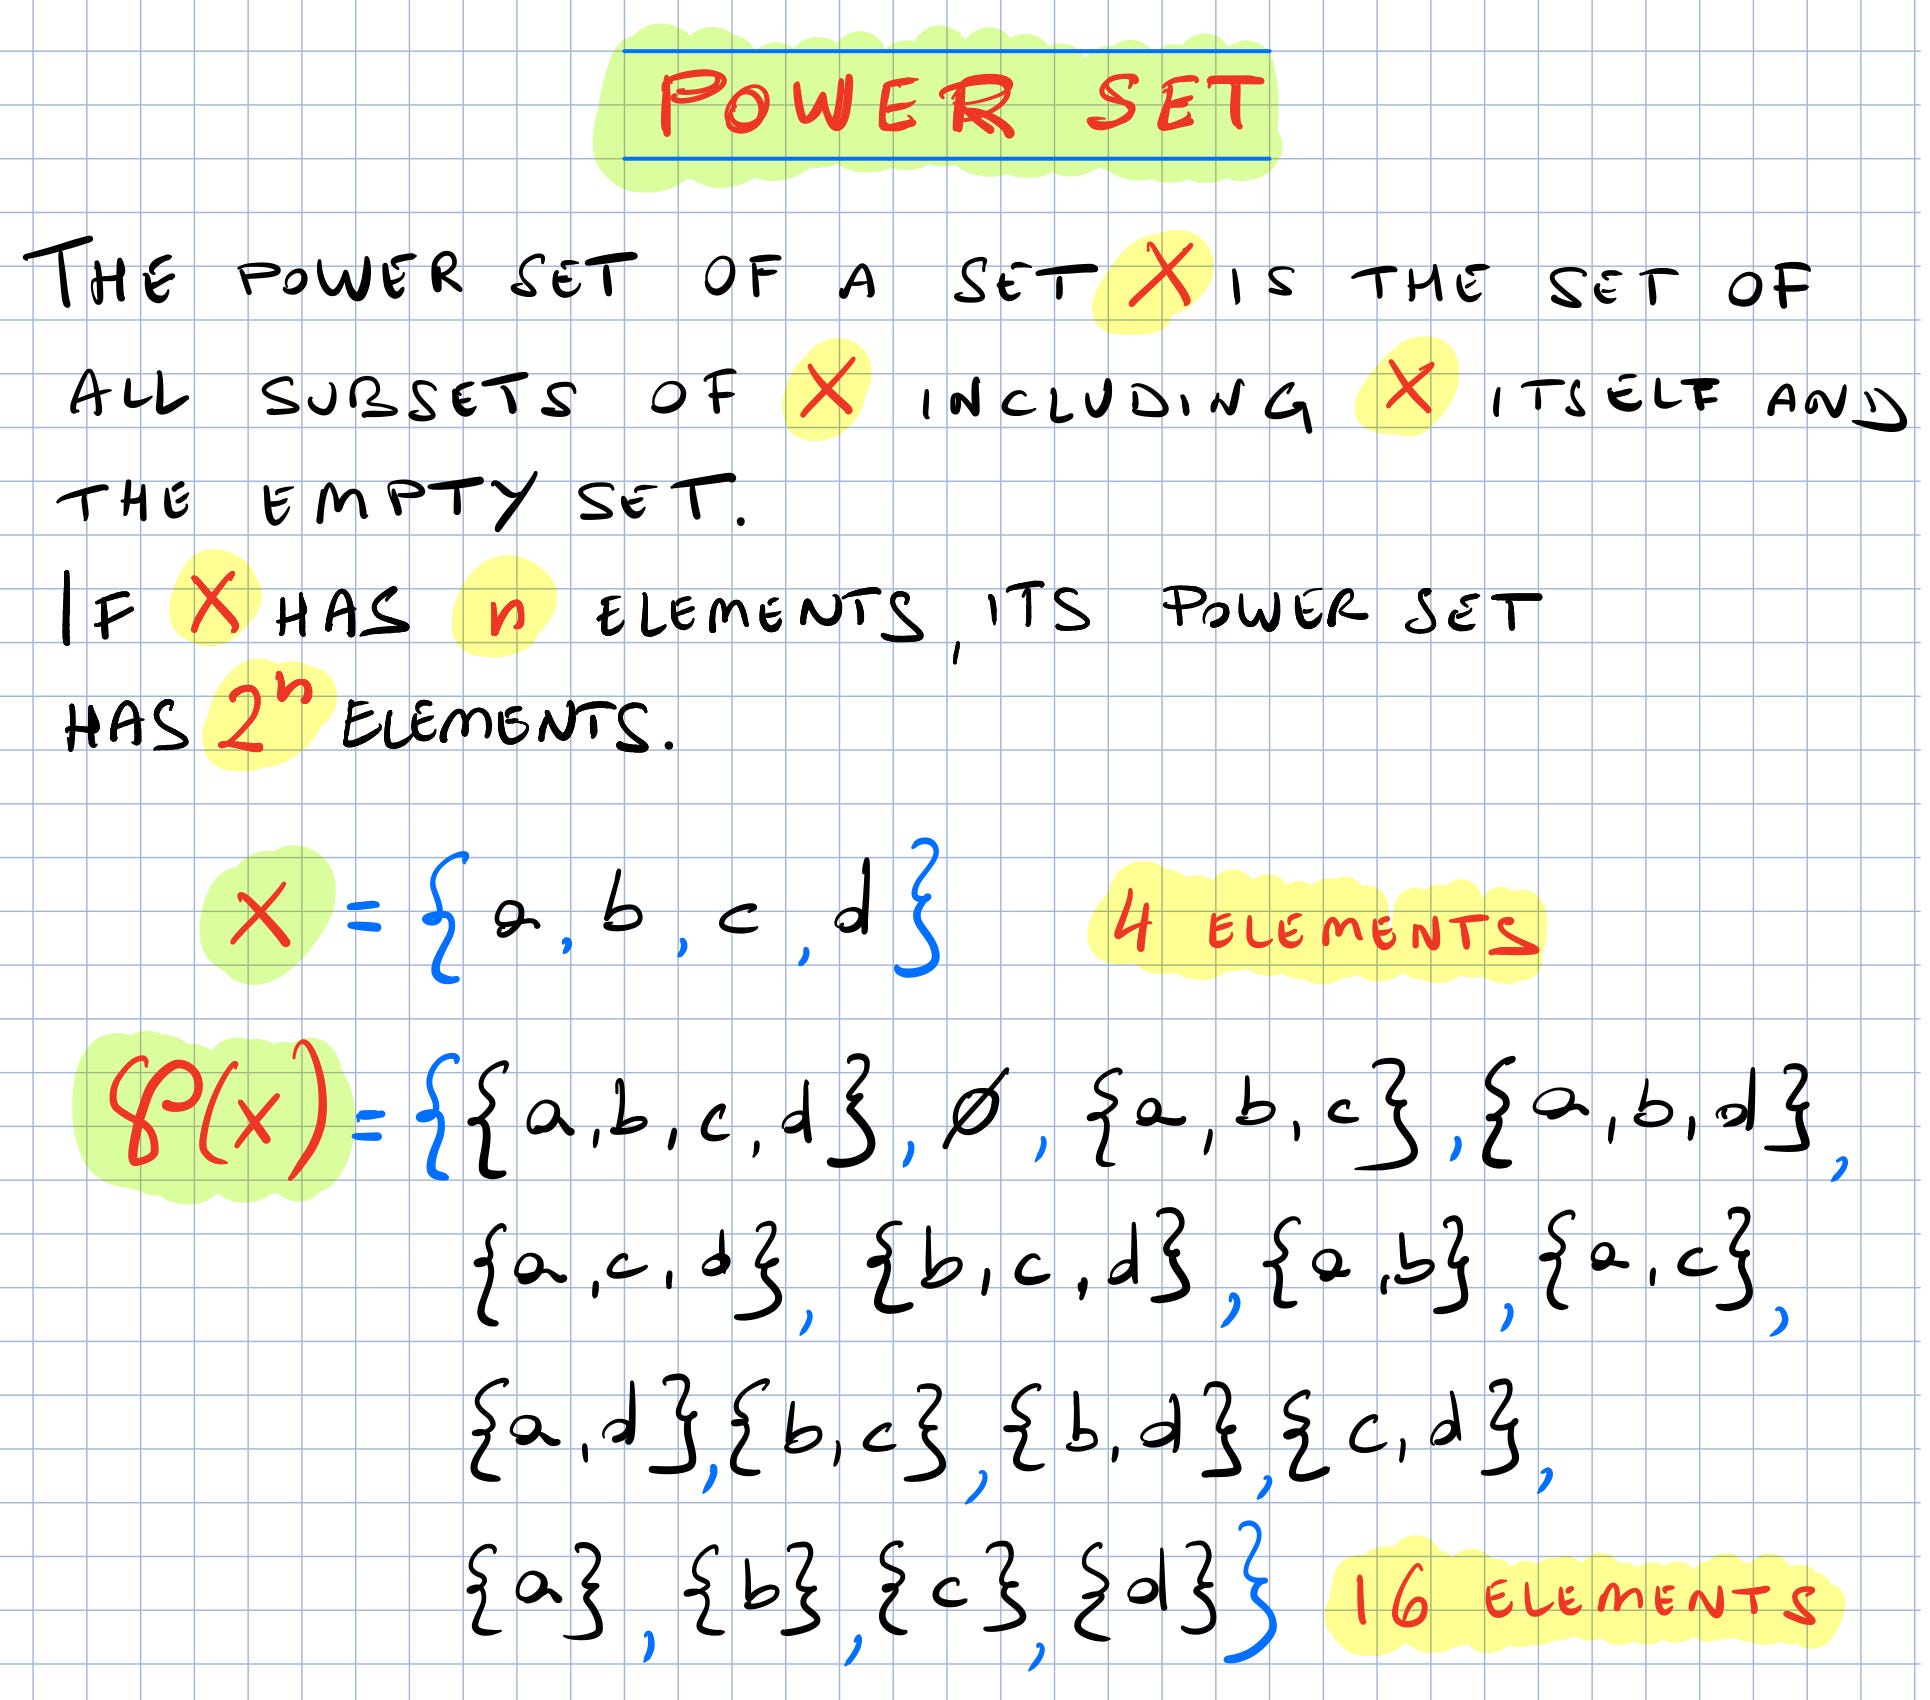 POWER SET
THE POWER SET OF A SET X IS THE SET OF
ALL SUBSETS OF X INCLUDING X ITSELF AND
THE EMPTY SET.
IF X HAS n ELEMENTS, ITS POWER SET
HAS 2ⁿ ELEMENTS.
X = {a, b, c, d} 4 ELEMENTS
℘(X) = {{a,b,c,d}, ∅, {a,b,c}, {a,b,d},
{a,c,d}, {b,c,d}, {a,b}, {a,c},
{a,d}, {b,c}, {b,d}, {c,d},
{a}, {b}, {c}, {d}} 16 ELEMENTS